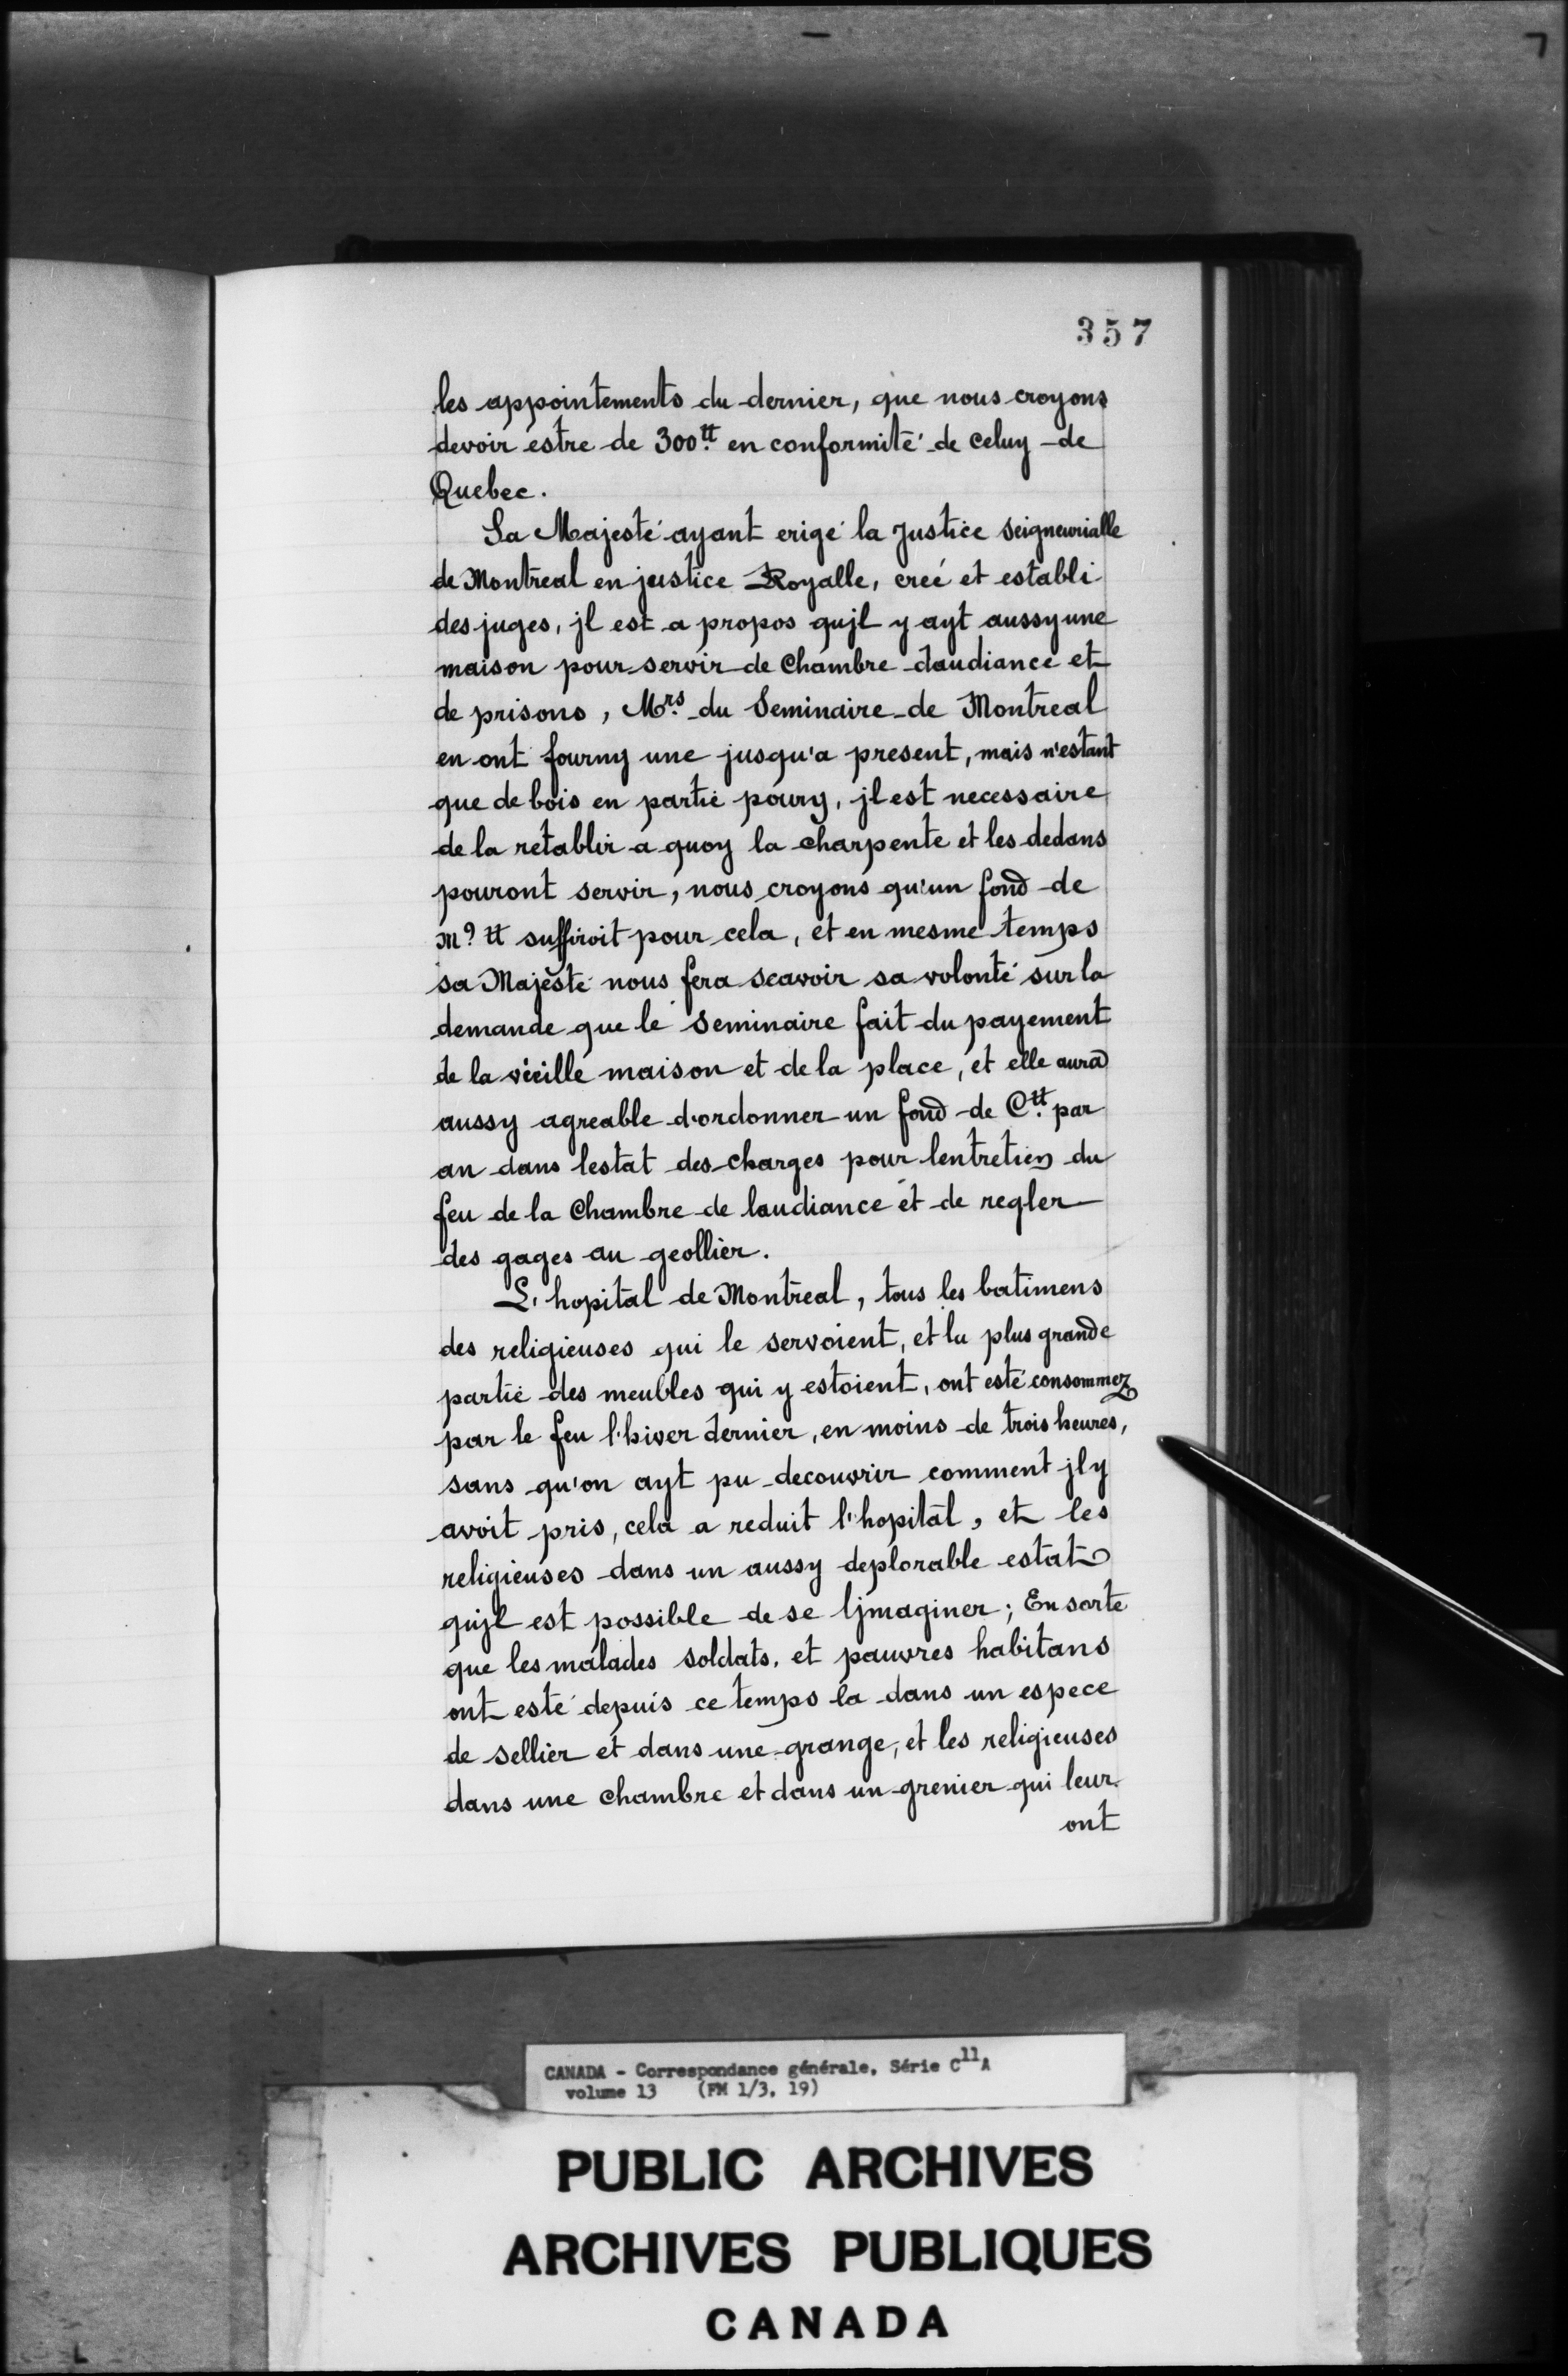 357
les appointements du dernier, que nous croyons
devoir estre de 300tt en conformité de celuy de
Quebec.
Sa Majesté ayant erigé la Justice Seigneurialle
de Montreal en justice Royalle, creé et establi
des juges, jl est a propos qujl y ayt aussy une
maison pour servir de Chambre daudiance et
de prisons, Mrs. du Seminaire de Montreal
en ont fourny une jusqu'a present, mais n'estant
que de bois en partie poury, jl est necessaire
de la retablir a quoy la charpente et les dedans
pouront servir, nous croyons qu'un fond de
m? tt suffiroit pour cela, et en mesme temps
sa Majesté nous fera scavoir sa volonté sur la
demande que le Seminaire fait du payement
de la vieille maison et de la place, et elle aura
aussy agreable d'ordonner un fond de Ctt par
an dans lestat des charges pour lentretien du
feu de la Chambre de laudiance et de regler
des gages au geollier.
L'hopital de Montreal, tous les batimens
des religieuses qui le servoient, et la plus grande
partie des meubles qui y estoient, ont esté consommez
par le feu l'hiver dernier, en moins de trois heures,
sans qu'on ayt pu decouvrir comment jl y
avoit pris, cela a reduit l'hopital, et les
religieuses dans un aussy deplorable estat
qujl est possible de se ljmaginer; En sorte
que les malades soldats, et pauvres habitans
ont esté depuis ce temps la dans un espece
de sellier et dans une grange, et les religieuses
dans une chambre et dans un grenier qui leur
ont
CANADA - Correspondance générale, Série C11A
volume 13 (FM 1/3, 19)
PUBLIC ARCHIVES
ARCHIVES PUBLIQUES
CANADA